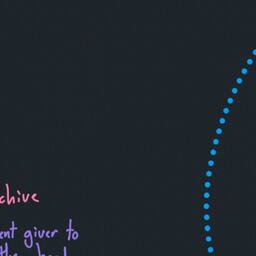 chive
ent giver to